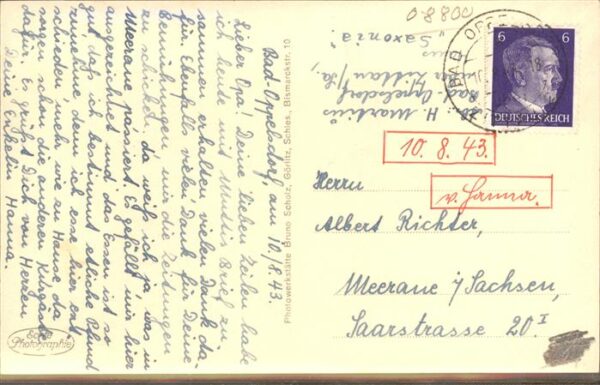 08800
Bad-Oppelsdorf, am 10/8.43.
Lieber Opa! Deine lieben Zeilen habe
ich heute mit Muttis Brief zu-
sammen erhalten vielen Dank da-
für. Ebenfalls vielen Dank für Deine
Bemühungen, um die Zeitungen
zu schicken, da weiß ich ja, was in
Meerane passiert. Es gefällt mir hier
ausgezeichnet und das Essen ist so
gut, daß ich bestimmt etliche Pfund
zunehme, denn ich esse hier ent-
schieden mehr, wie zu Hause, da
sorgen schon die anderen Kurgäste
dafür. Es grüßt Dich von Herzen
Deine Enkelin Hanna.
Photographie
Photowerkstätte Bruno Scholz, Görlitz, Schles., Bismarckstr. 10
H. Martius
Bad-Oppelsdorf
Zittau/Sa.,
Haus "Saxonia"
BAD OPPE
6 6
DEUTSCHES REICH
10. 8. 43.
v. Hanna.
Herrn
Albert Richter,
Meerane i/Sachsen,
Saarstrasse 20 I